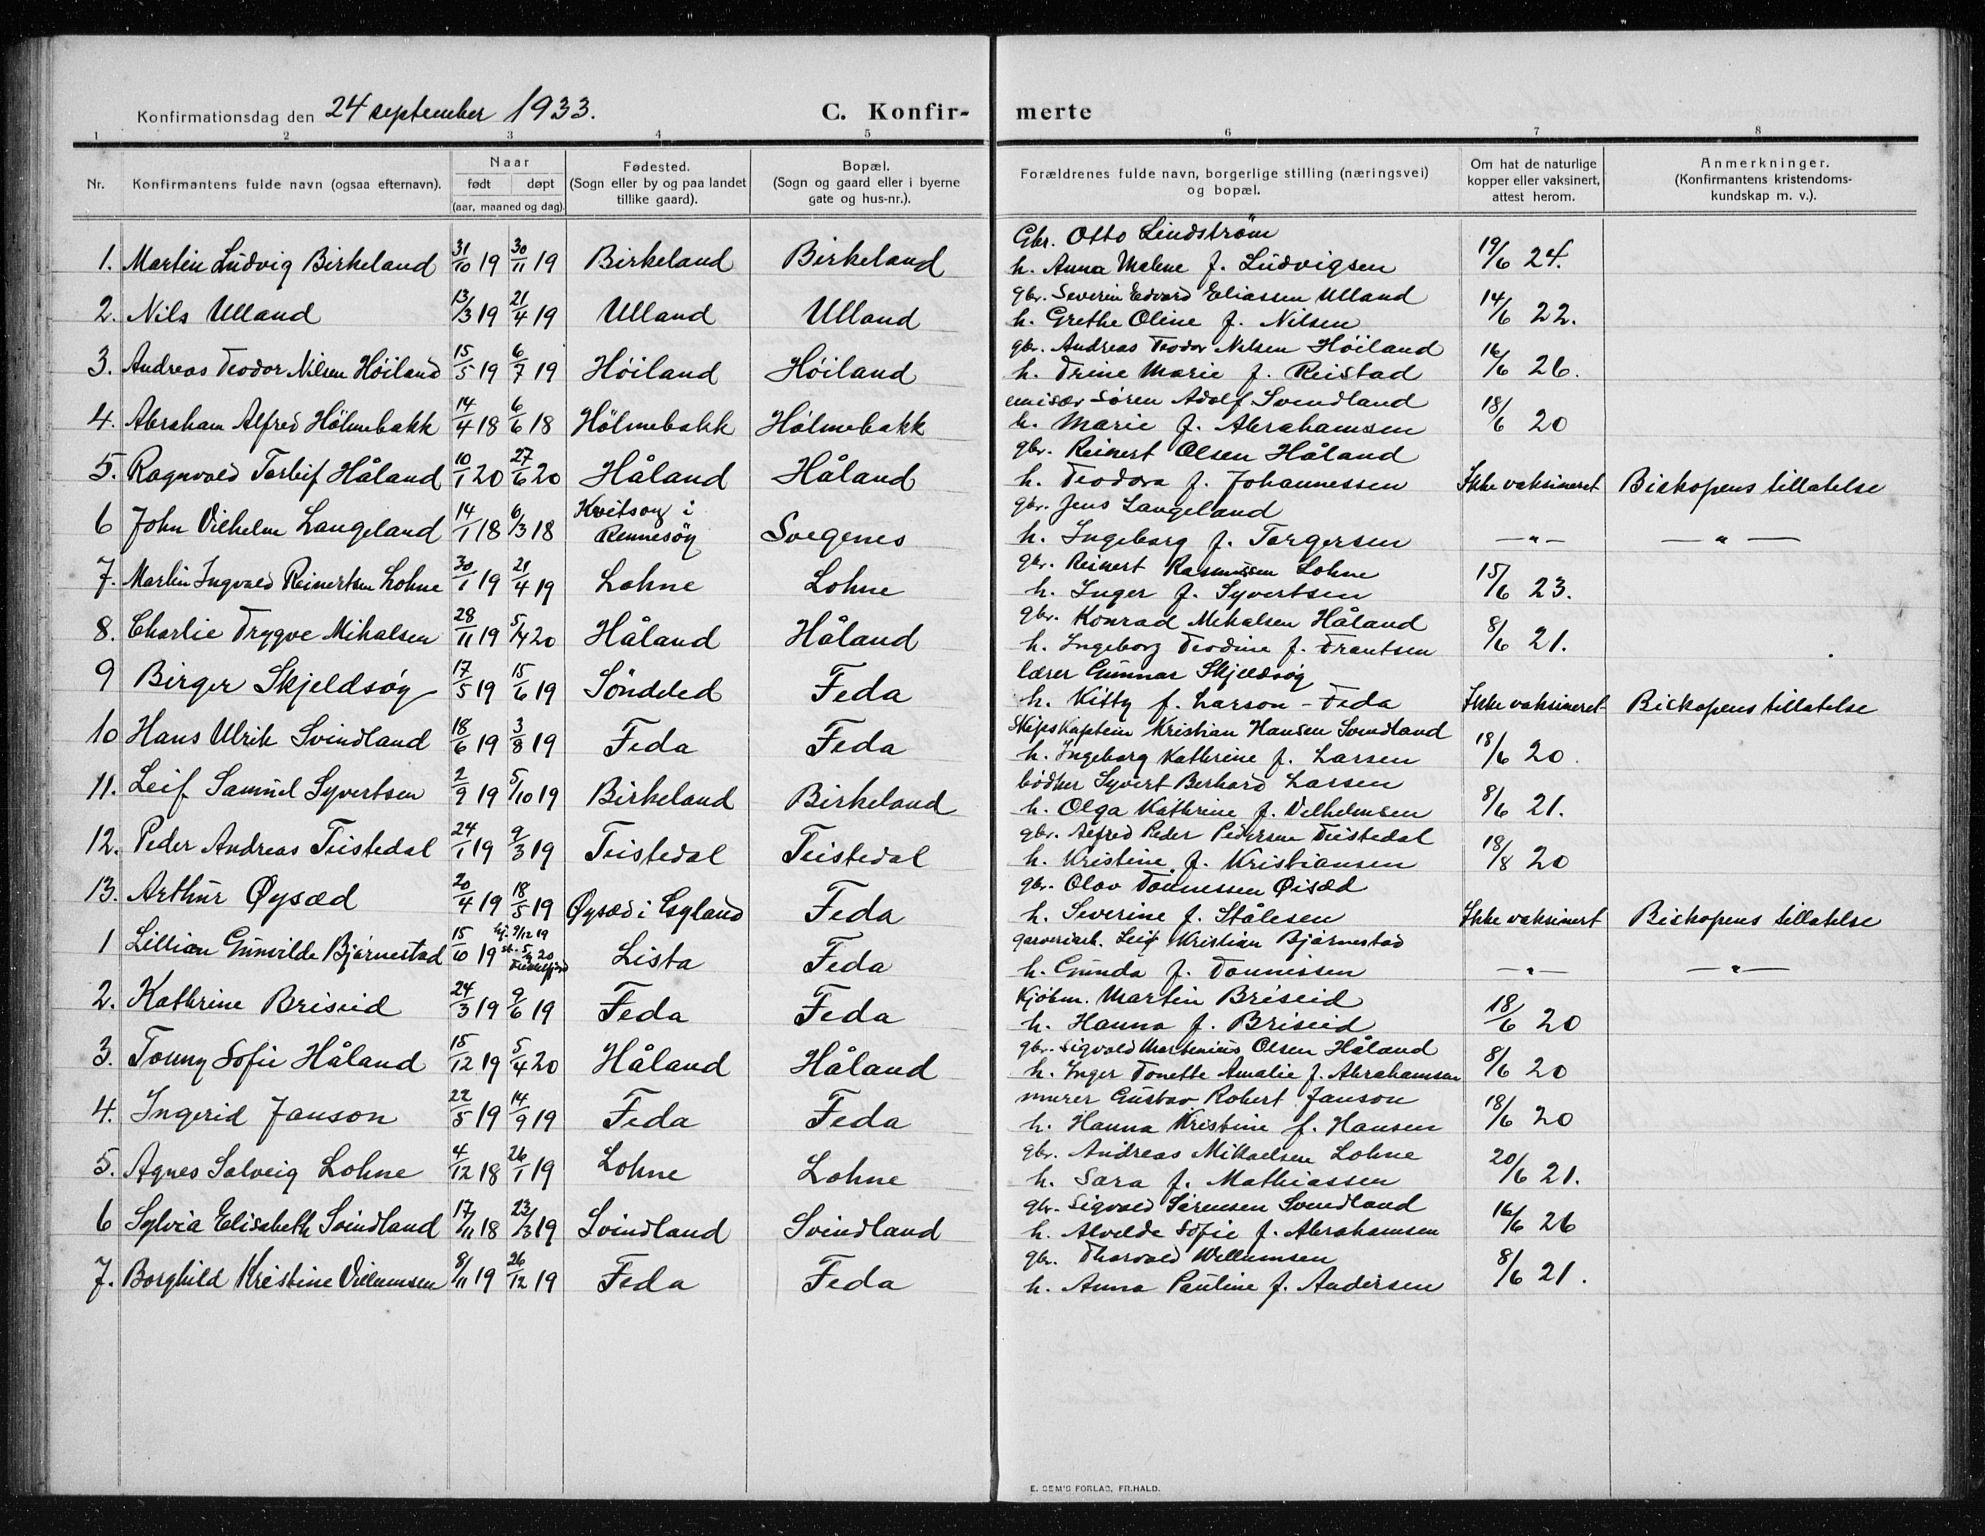 Konfirmationsdag den 24 september 1933. C. Konfir- merte
1 2 3 4 5 6 7 8
Nr. Konfirmantens fulde navn (ogsaa efternavn). Naar født døpt (aar, maaned og dag). Fødested. (Sogn eller by og paa landet tillike gaard). Bopæl. (Sogn og gaard eller i byerne gate og hus-nr.). Forældrenes fulde navn, borgerlige stilling (næringsvei) og bopæl. Om hat de naturlige kopper eller vaksinert, attest herom. Anmerkninger. (Konfirmantens kristendoms- kundskap m. v.).
Gbr. Otto Lindstrøm
1. Martin Ludvig Birkeland 31/10 19 30/11 19 Birkeland Birkeland h. Anna Malene f. Ludvigsen 19/6 24.
gbr. Severin Edvard Eliassen Ulland
2. Nils Ulland 13/3 19 21/4 19 Ulland Ulland h. Grethe Oline f. Nilsen 14/6 22.
gbr. Andreas Teodor Nilsen Höiland
3. Andreas Teodor Nilsen Höiland 15/5 19 6/7 19 Höiland Höiland h. Trine Marie f. Reistad 16/6 26.
emisær Sören Adolf Svindland
4. Abraham Alfred Hölmebakk 14/4 18 6/6 18 Hölmebakk Hölmebakk h. Marie f. Abrahamsen 18/6 20
gbr. Reinert Olsen Håland
5. Ragnvald Torleif Håland 10/1 20 27/6 20 Håland Håland h. Teodora f. Johannessen Ikke vaksineret Biskopens tillatelse
gbr. Jens Langeland
6 John Vilhelm Langeland 14/1 18 6/3 18 Kvitsøy i Rennesöy Svegenes h. Ingeborg f. Torgersen — " — — " —
gbr. Reinert Rasmussen Lohne
7. Martin Ingvald Reinertsen Lohne 30/1 19 21/4 19 Lohne Lohne h. Inger f. Syvertsen 15/6 23.
gbr. Konrad Mikalsen Håland
8. Charlie Trygve Mikalsen 28/11 19 5/4 20 Håland Håland h. Ingeborg Teodine f. Frantsen 8/6 21.
lærer Gunnar Skjeldsöy
9 Birger Skjeldsöy 17/5 19 15/6 19 Söndeled Feda h. Kitty f. Larson - Feda Ikke vaksineret Biskopens tillatelse
Skipskaptein Kristian Hansen Svindland
10 Hans Ulrik Svindland 18/6 19 3/8 19 Feda Feda h. Ingeborg Kathrine f. Larsen 18/6 20.
bødker Syvert Berhard Larsen
11. Leif Samuel Syvertsen 2/9 19 5/10 19 Birkeland Birkeland h. Olga Kathrine f. Vilhelmsen 8/6 21.
gbr. Alfred Peder Pedersen Teistedal
12. Peder Andreas Teistedal 24/1 19 9/3 19 Teistedal Teistedal h. Kristine f. Kristiansen 18/8 20
gbr. Olav Tönnessen Öisæd
13. Arthur Øysæd 20/4 19 18/5 19 Øysæd i Gyland Feda h. Severine f. Stålesen Ikke vaksinert Biskopens tillatelse
garveriarb. Leif Kristian Bjørnestad
1 Lillian Gunvilde Bjørnestad 15/10 19 hj. 9/12 19 Lista Feda h. Gunda f. Tønnissen — " — — " —
Kjöbm. Martin Briseid
2. Kathrine Briseid 24/3 19 9/6 19 Feda Feda h. Hanna f. Briseid 18/6 20
gbr. Sigvald Martenius Olsen Håland
3. Tonny Sofie Håland 15/12 19 5/4 20 Håland Håland h. Inger Tonette Amalie f. Abrahamsen 8/6 20
murer Gustav Robert Janson
4. Ingerid Janson 22/5 19 14/9 19 Feda Feda h. Hanna Kristine f. Hansen 18/6 20
gbr. Andreas Mikaelsen Lohne
5. Agnes Solveig Lohne 4/12 18 26/1 19 Lohne Lohne h. Sara f. Mathiassen 20/6 21.
gbr. Sigvald Sörensen Svindland
6 Sylvia Elisabeth Svindland 17/11 18 23/3 19 Svindland Svindland h. Alvilde Sofie f. Abrahamsen 16/6 26
gbr. Thorvald Willumsen
7. Borghild Kristine Villumsen 8/11 19 26/12 19 Feda Feda h. Anna Pauline f. Andersen 8/6 21.
E. SEM'S FORLAG, FR.HALD.